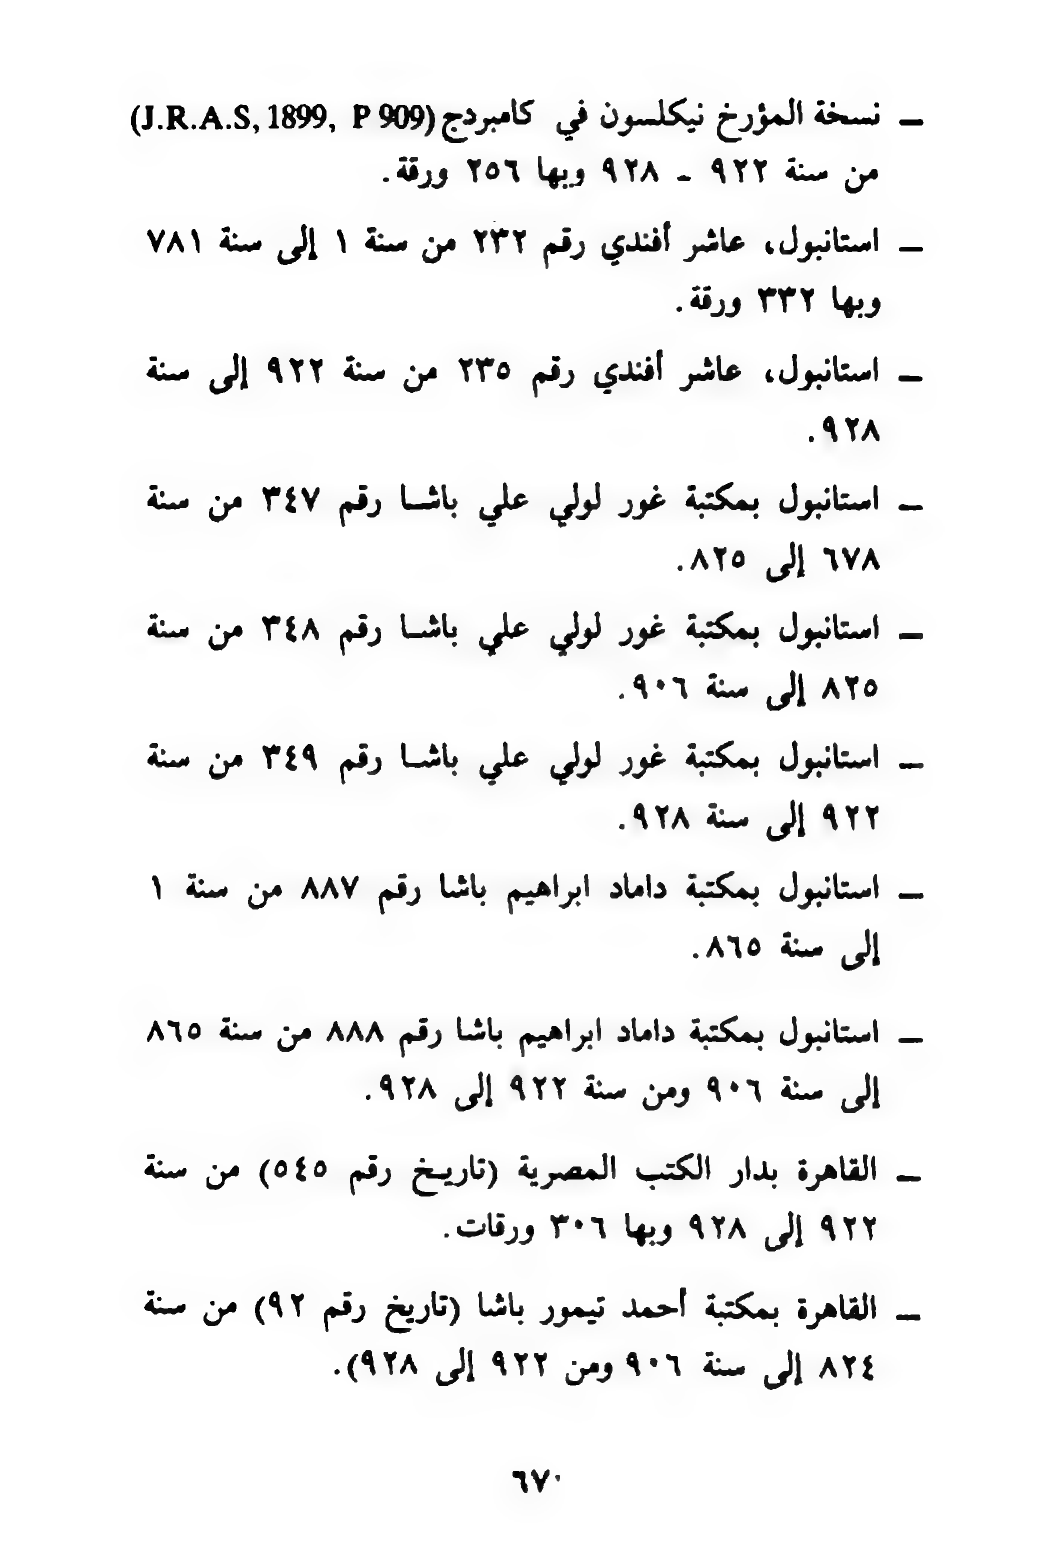 ــ نسخة المؤرخ نيكلسون في كامبردج (J.R.A.S, 1899, P 909)
من سنة ٩٢٢ - ٩٢٨ وبها ٢٥٦ ورقة.
ــ استانبول، عاشر أفندي رقم ٢٣٢ من سنة ١ إلى سنة ٧٨١
وبها ٣٣٢ ورقة.
ــ استانبول، عاشر أفندي رقم ٢٣٥ من سنة ٩٢٢ إلى سنة
٩٢٨.
ــ استانبول بمكتبة غور لولي علي باشا رقم ٣٤٧ من سنة
٦٧٨ إلى ٨٢٥.
ــ استانبول بمكتبة غور لولي علي باشا رقم ٣٤٨ من سنة
٨٢٥ إلى سنة ٩٠٦.
ــ استانبول بمكتبة غور لولي علي باشا رقم ٣٤٩ من سنة
٩٢٢ إلى سنة ٩٢٨.
ــ استانبول بمكتبة داماد ابراهيم باشا رقم ٨٨٧ من سنة ١
إلى سنة ٨٦٥.
ــ استانبول بمكتبة داماد ابراهيم باشا رقم ٨٨٨ من سنة ٨٦٥
إلى سنة ٩٠٦ ومن سنة ٩٢٢ إلى ٩٢٨.
ــ القاهرة بدار الكتب المصرية (تاريخ رقم ٥٤٥) من سنة
٩٢٢ إلى ٩٢٨ وبها ٣٠٦ ورقات.
ــ القاهرة بمكتبة أحمد تيمور باشا (تاريخ رقم ٩٢) من سنة
٨٢٤ إلى سنة ٩٠٦ ومن ٩٢٢ إلى ٩٢٨).
٦٧٠